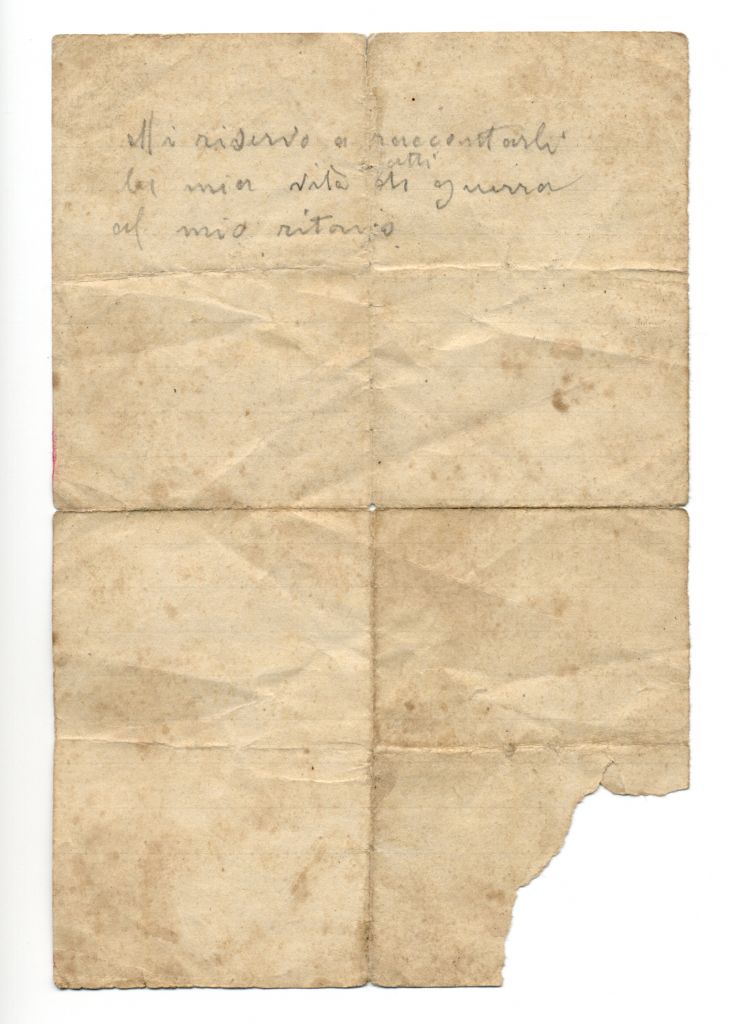 Mi riservo a raccontarli
la mia vita di fatti guerra
al mio ritorno